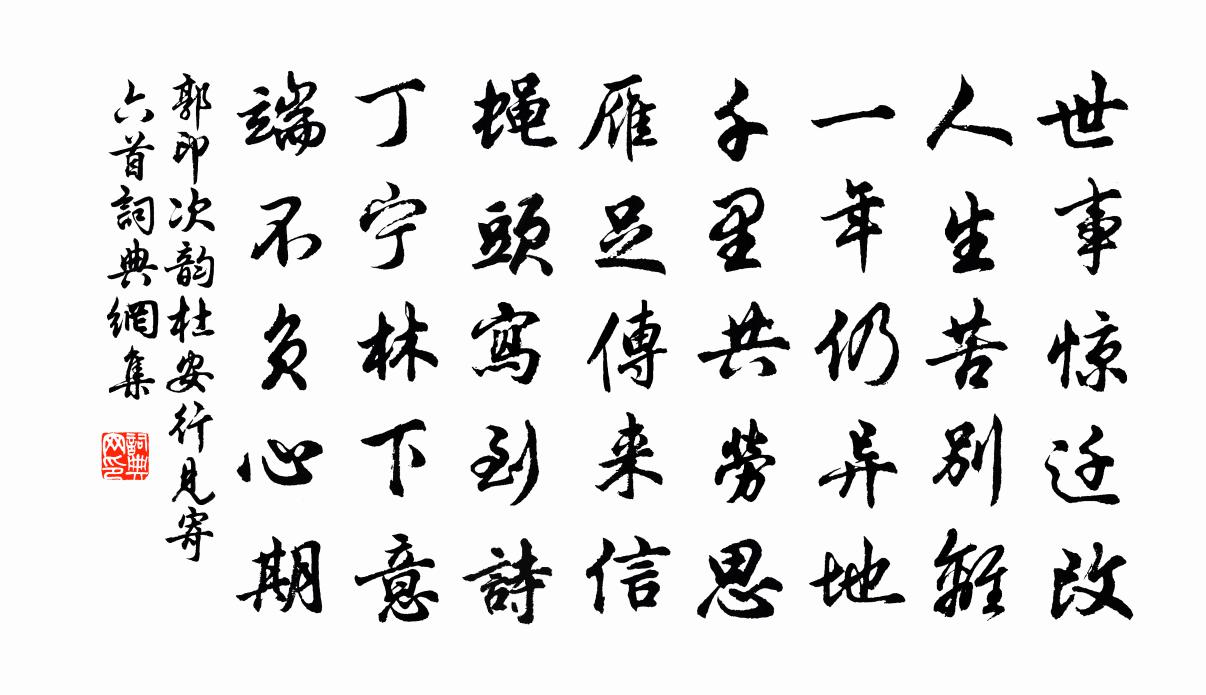 世事惊迁改
人生苦别離
一年仍异地
千里共勞思
雁足傳来信
蝇頭寫到詩
丁宁林下意
端不负心期
郭印次韵杜安行見寄
六首詞典網集
詞典网印